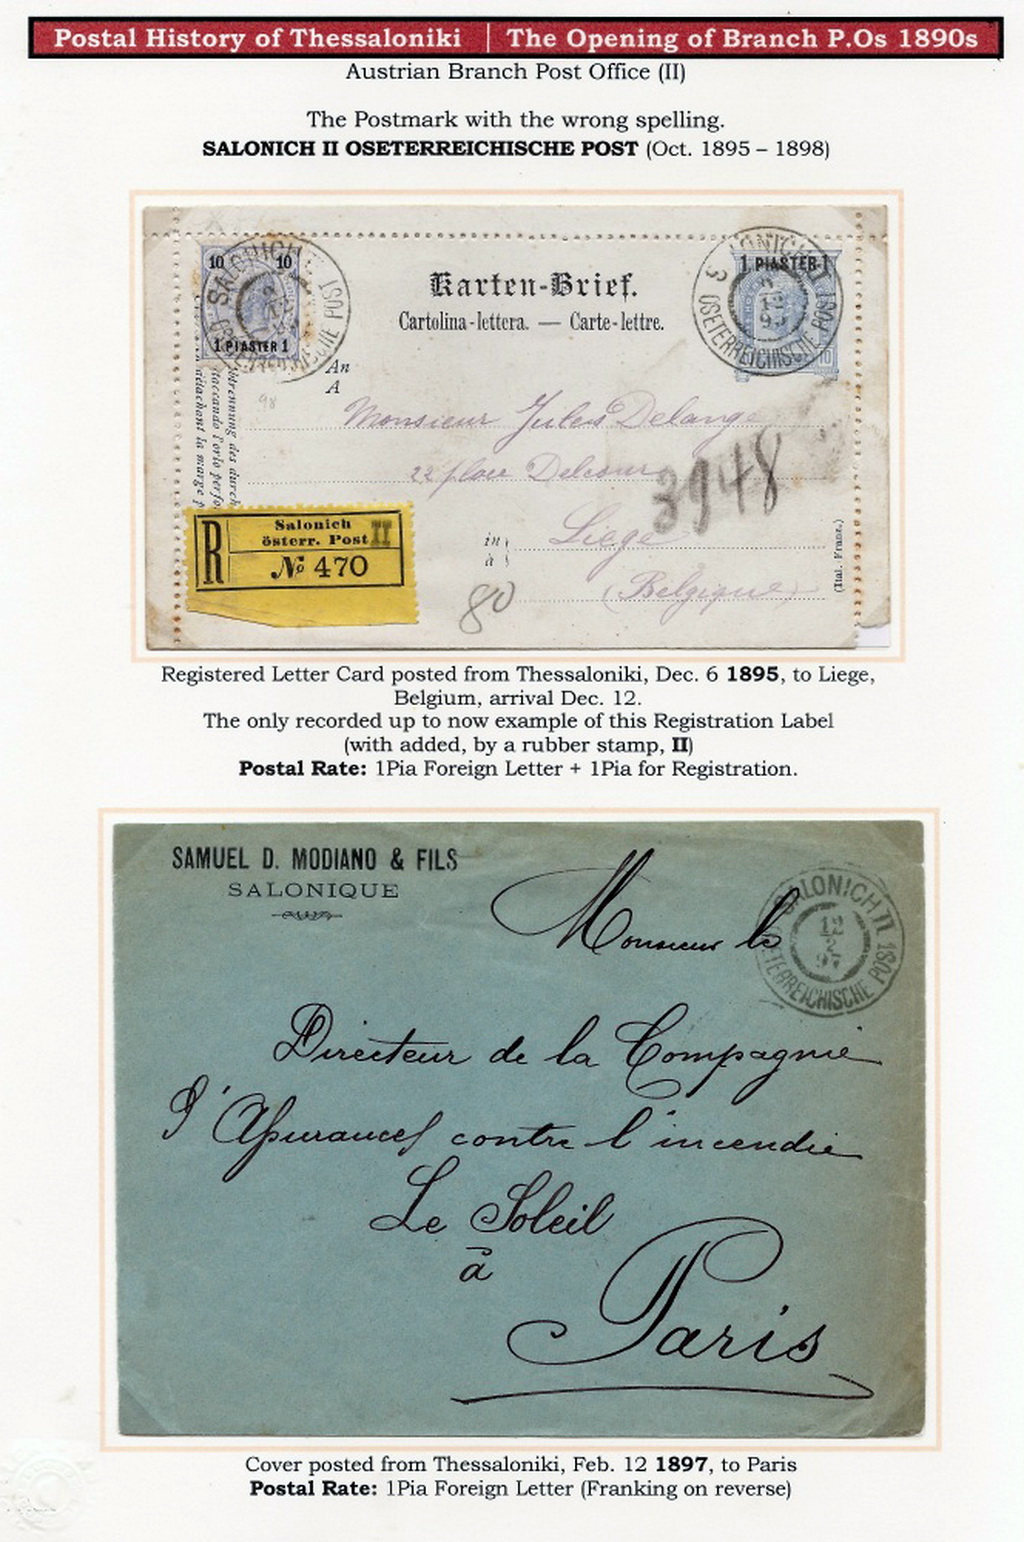 Postal History of Thessaloniki | The Opening of Branch P.Os 1890s
Austrian Branch Post Office (II)
The Postmark with the wrong spelling.
SALONICH II OSETERREICHISCHE POST (Oct. 1895 – 1898)
10 10
1 PIASTER 1
SALONICH
OSETERREICHISCHE POST
Karten-Brief.
Cartolina-lettera. — Carte-lettre.
SALONICH II
OSETERREICHISCHE POST
12
95
1 PIASTER 1
10
An
A
98
Monsieur Jules Delange
22 place Delcour
3948
in
à
Liege
(Belgique)
80
(Ital. Franz.)
btrennung des durch
taccando l'orlo perfo
détachant la marge p
R
Salonich
österr. Post II
No 470
Registered Letter Card posted from Thessaloniki, Dec. 6 1895, to Liege,
Belgium, arrival Dec. 12.
The only recorded up to now example of this Registration Label
(with added, by a rubber stamp, II)
Postal Rate: 1Pia Foreign Letter + 1Pia for Registration.
SAMUEL D. MODIANO & FILS
SALONIQUE
SALONICH II
OSETERREICHISCHE POST
12
2
97
Monsieur le
Directeur de la Compagnie
d'Assurances contre l'incendie
Le Soleil
à
Paris
Cover posted from Thessaloniki, Feb. 12 1897, to Paris
Postal Rate: 1Pia Foreign Letter (Franking on reverse)